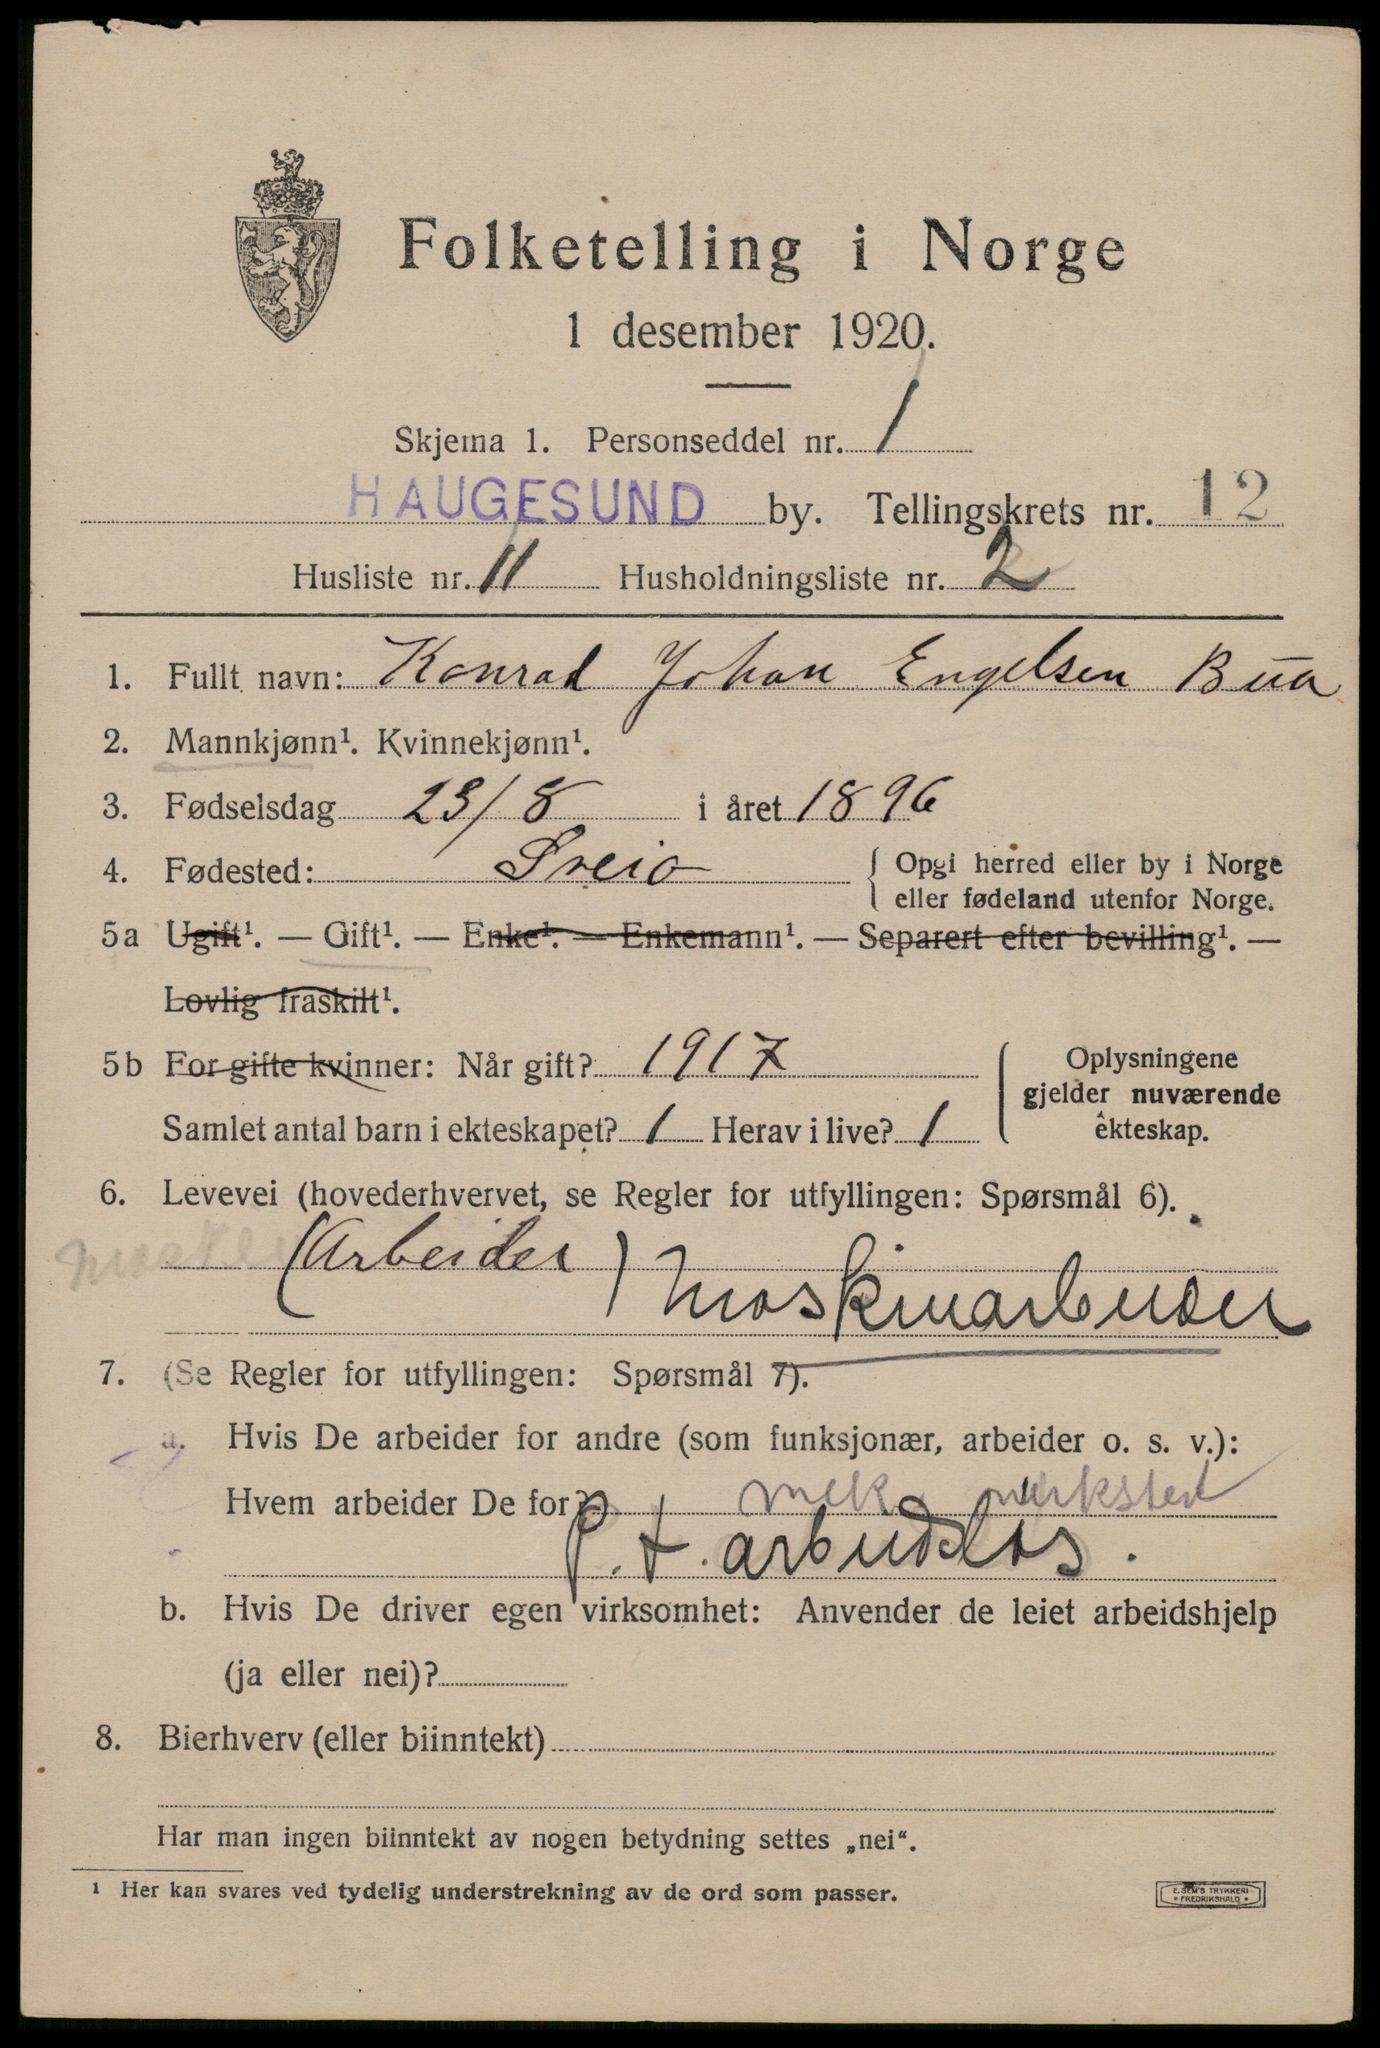 Folketelling i Norge
1 desember 1920.
Skjema 1. Personseddel nr. 1
HAUGESUND by. Tellingskrets nr. 12
Husliste nr. 11 Husholdningsliste nr. 2
1. Fullt navn: Konrad Johan Engelsen Bua
2. Mannkjønn¹. Kvinnekjønn¹.
3. Fødselsdag 23/8 i året 1896
4. Fødested: Sveio { Opgi herred eller by i Norge
eller fødeland utenfor Norge.
5a Ugift¹. — Gift¹. — Enke¹. — Enkemann¹. — Separert efter bevilling¹. —
Lovlig fraskilt¹.
5b For gifte kvinner: Når gift? 1917 Oplysningene
gjelder nuværende
Samlet antal barn i ekteskapet? 1 Herav i live? 1 ekteskap.
6. Levevei (hovederhvervet, se Regler for utfyllingen: Spørsmål 6).
(Arbeider)
Maskinarbeider
7. (Se Regler for utfyllingen: Spørsmål 7).
a. Hvis De arbeider for andre (som funksjonær, arbeider o. s. v.):
Hvem arbeider De for? mek. verksted
p.t. arbeidsløs.
b. Hvis De driver egen virksomhet: Anvender de leiet arbeidshjelp
(ja eller nei)?
8. Bierhverv (eller biinntekt)
Har man ingen biinntekt av nogen betydning settes „nei“.
¹ Her kan svares ved tydelig understrekning av de ord som passer.
E. SEM'S TRYKKERI
* FREDRIKSHALD *